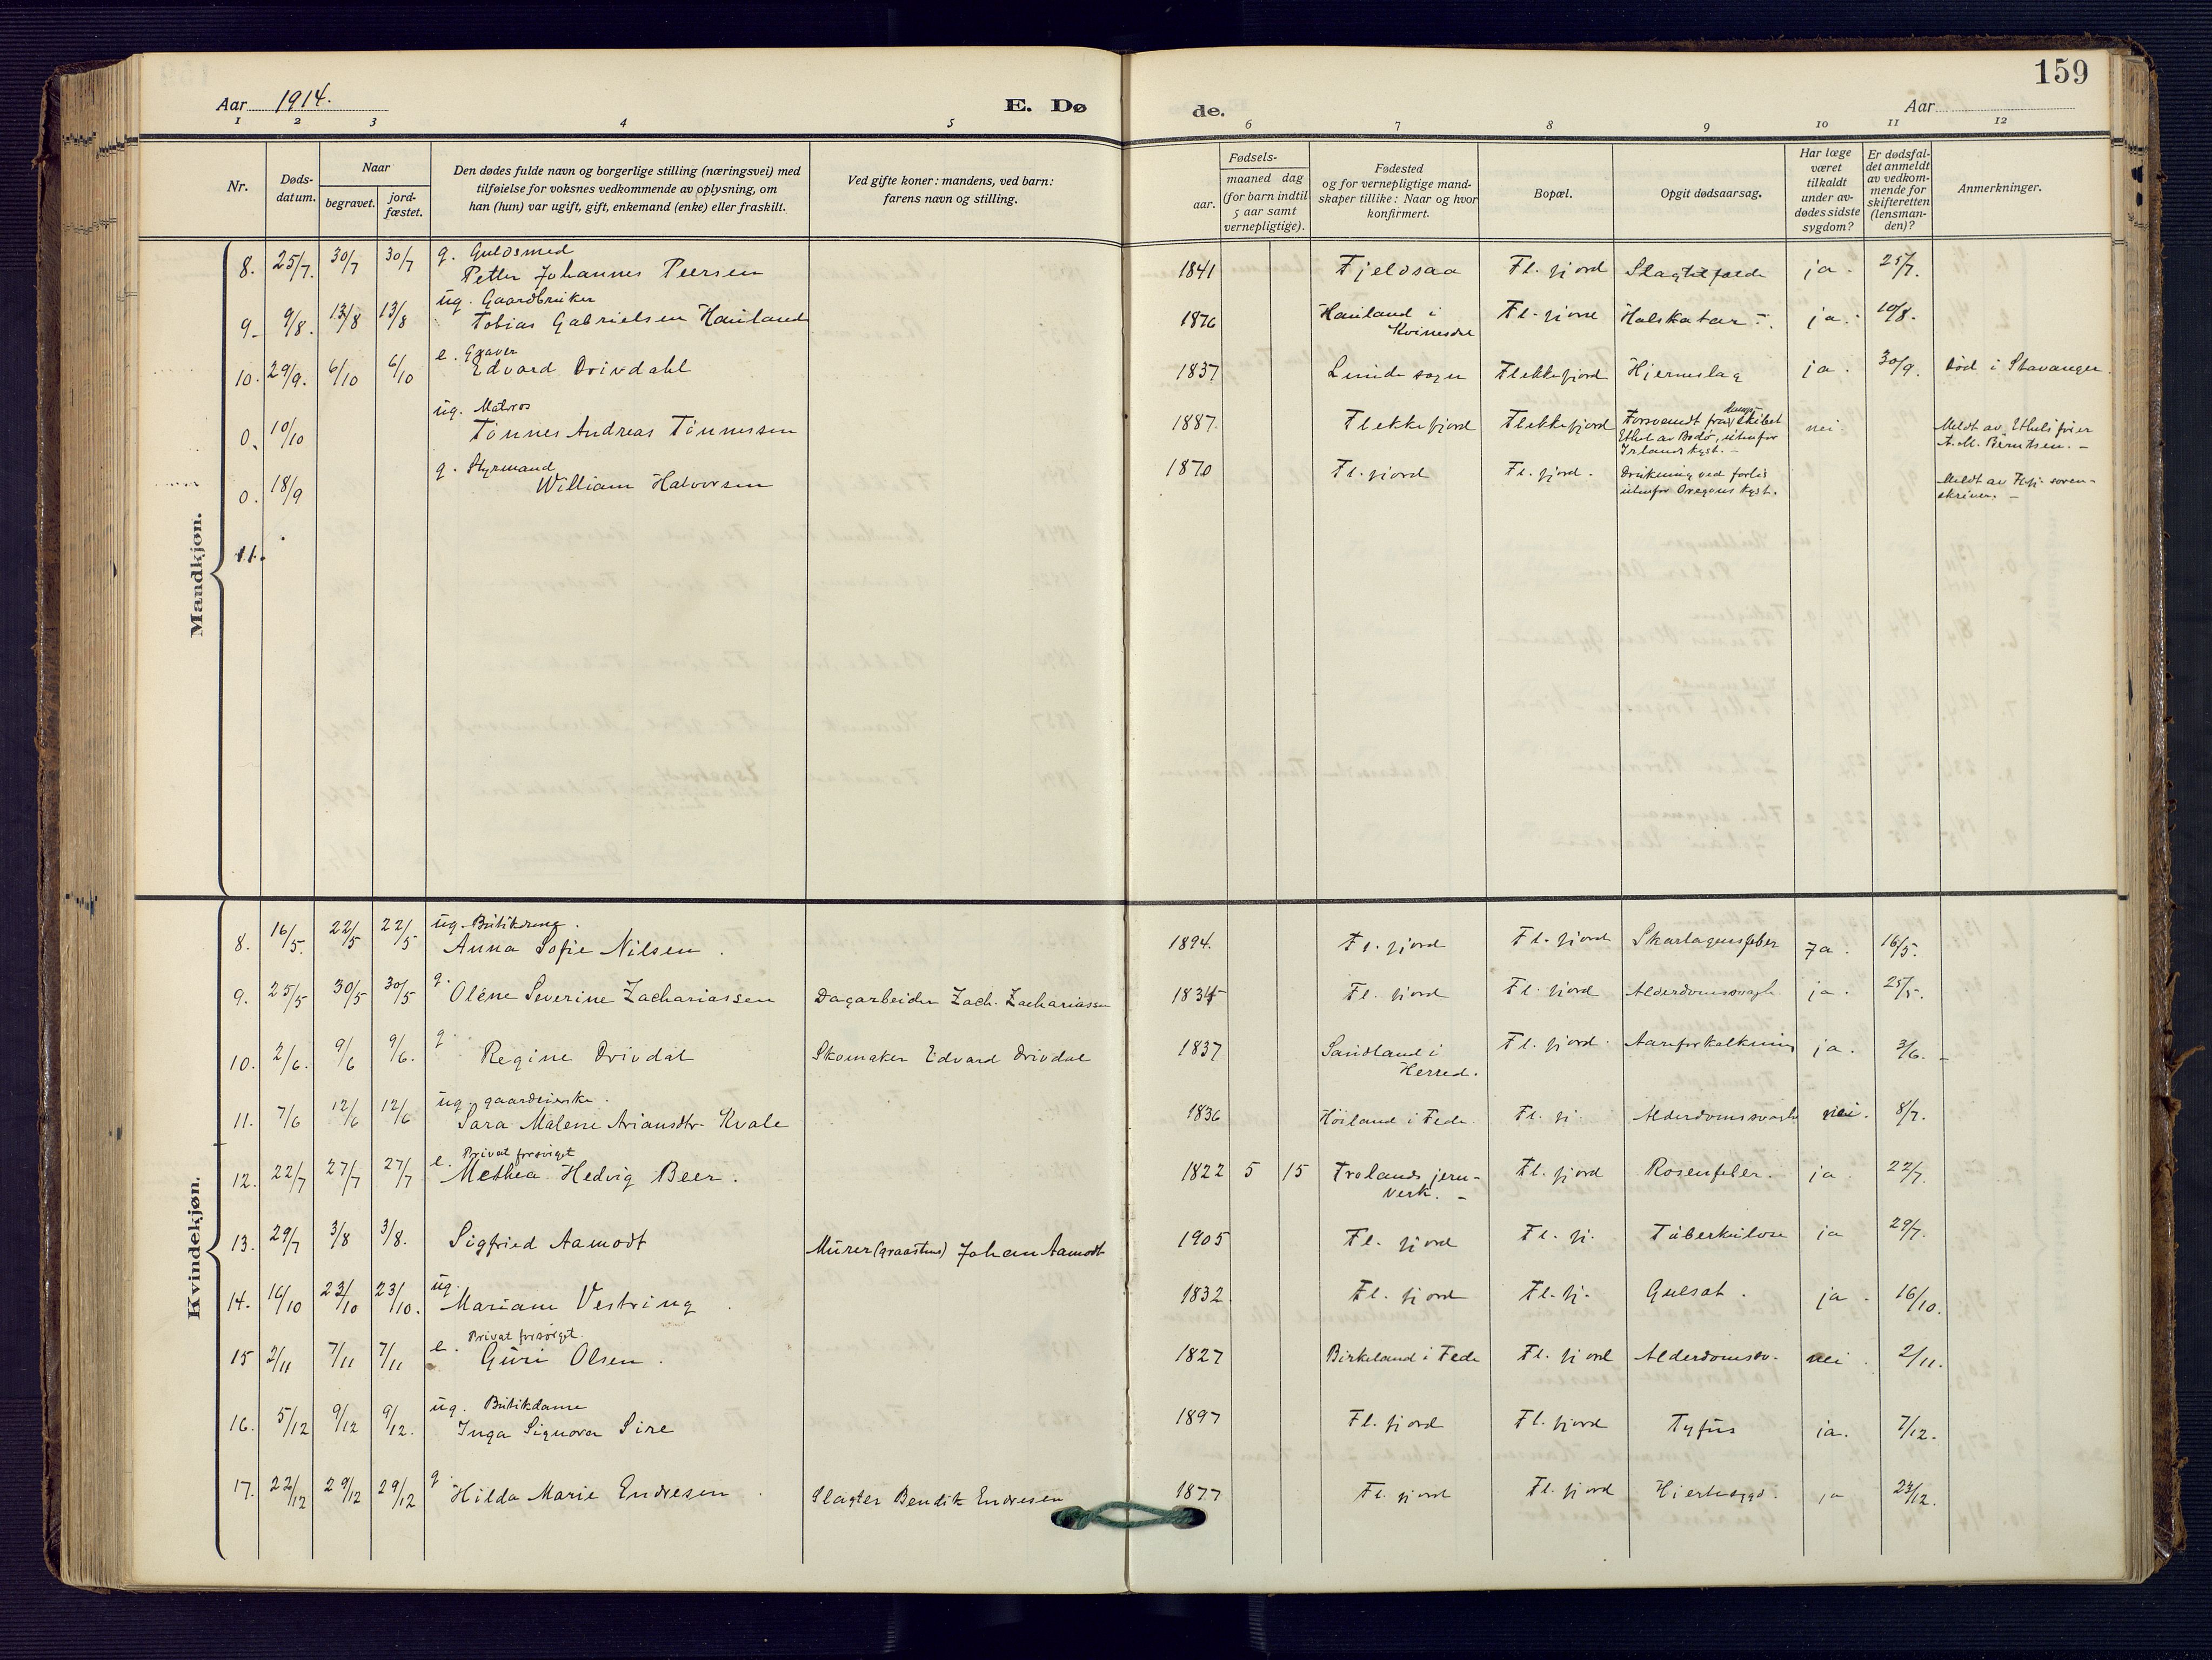 159
Aar 1914.
E. Dø
de.
Aar
1 2 3 4 5 6 7 8 9 10 11 12
Nr.
Døds-
datum.
Naar
begravet.
jord-
fæstet.
Den dødes fulde navn og borgerlige stilling (næringsvei) med
tilføielse for voksnes vedkommende av oplysning, om
han (hun) var ugift, gift, enkemand (enke) eller fraskilt.
Ved gifte koner: mandens, ved barn:
farens navn og stilling.
Fødsels-
aar.
maaned dag
(for barn indtil
5 aar samt
vernepligtige).
Fødested
og for vernepligtige mand-
skaper tillike: Naar og hvor
konfirmert.
Bopæl.
Opgit dødsaarsag.
Har læge
været
tilkaldt
under av-
dødes sidste
sygdom?
Er dødsfal-
det anmeldt
av vedkom-
mende for
skifteretten
(lensman-
den)?
Anmerkninger.
Mandkjøn.
g. Guldsmed
8. 25/7. 30/7 30/7 Petter Johannes Peersen 1841 Fjeldsaa Fl. fjord Slagtilfælde ja. 25/7.
ug. Gaardbruker
9. 9/8. 13/8 13/8 Tobias Gabrielsen Hauland 1876 Hauland i Fl. fjord Halskatar ja. 10/8.
Kvinesdal
e. Graver
10. 29/9. 6/10 6/10 Edvard Drivdahl 1837 Lunde sogn Flekkefjord Hjerneslag ja. 30/9. Død i Stavanger.
ug. Matros
0. 10/10 Tønnes Andreas Tønnessen 1887. Flekkefjord Flekkefjord Forsvandt fra skibet nei. Meldt av Ethels fører
Ethel av Bodø, utenfor A.M. Berntsen. –
Irlands kyst. –
g. Styrmand
0. 18/9 William Halvorsen 1870 Fl. fjord Fl. fjord. Drukning ved forlis Meldt av Fl.fj. soren-
utenfor Oregons kyst. skriver. –
11.
Kvindekjøn.
ug. Butikdreng.
8. 16/5. 22/5 22/5 Anna Sofie Nilsen. 1894. Fl. fjord Fl. fjord Skarlagensfeber ja. 16/5.
g.
9. 25/5 30/5 30/5 Oléne Severine Zachariassen Dagarbeider Zach. Zachariassen 1834 Fl. fjord Fl. fjord Alderdomssvagh. ja. 25/5.
g.
10. 2/6. 9/6 9/6. Regine Drivdal Skomaker Edvard Drivdal 1837 Sandland i Fl. fjord. Aareforkalkning ja. 3/6. –
Herred.
ug. gaardeierske.
11. 7/6 12/6 12/6 Sara Malene Ariansdtr. Kvale 1836 Høiland i Fede. Fl. fj. Alderdomssvagh nei. 8/7.
e. Privat forsørget
12. 22/7 27/7 27/7 Methea Hedvig Beer. 1822 5 15 Frolands jern- Fl. fjord Rosenfeber. ja. 22/7.
verk. –
13. 29/7 3/8 3/8. Sigfried Aamodt Murer (graastens) Johan Aamodt 1905 Fl. fjord Fl. fj. Tuberkulose ja 29/7.
ug.
14. 16/10 23/10 23/10. Mariane Vestring 1832 Fl. fjord Fl. fj. Gulsot. ja 16/10.
e. Privat forsørget.
15 2/11 7/11 7/11 Guri Olsen. 1827 Birkeland i Fede Fl. fjord Alderdomssv. nei. 2/11.
ug. Butikdame
16. 5/12 9/12 9/12. Inga Signora Sire 1897 Fl. fjord Fl. fjord Tyfus ja. 7/12.
g.
17. 22/12 29/12 29/12 Hilda Marie Endresen. Slagter Bendik Endresen 1877 Fl. fjord Fl. fjord Hjertesygd. ja 23/12.